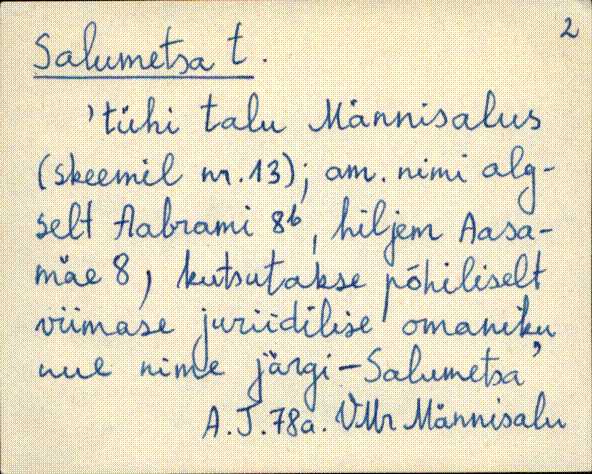 2
Salumetsa t.
'tühi talu Männisalus
(skeemil nr. 13); am. nimi alg-
selt Aabrami 8b, hiljem Aasa-
mäe 8, kutsutakse põhiliselt
viimase juriidilise omaniku
nime järgi - Salumetsa'
A.J. 78a. VMr Männisalu